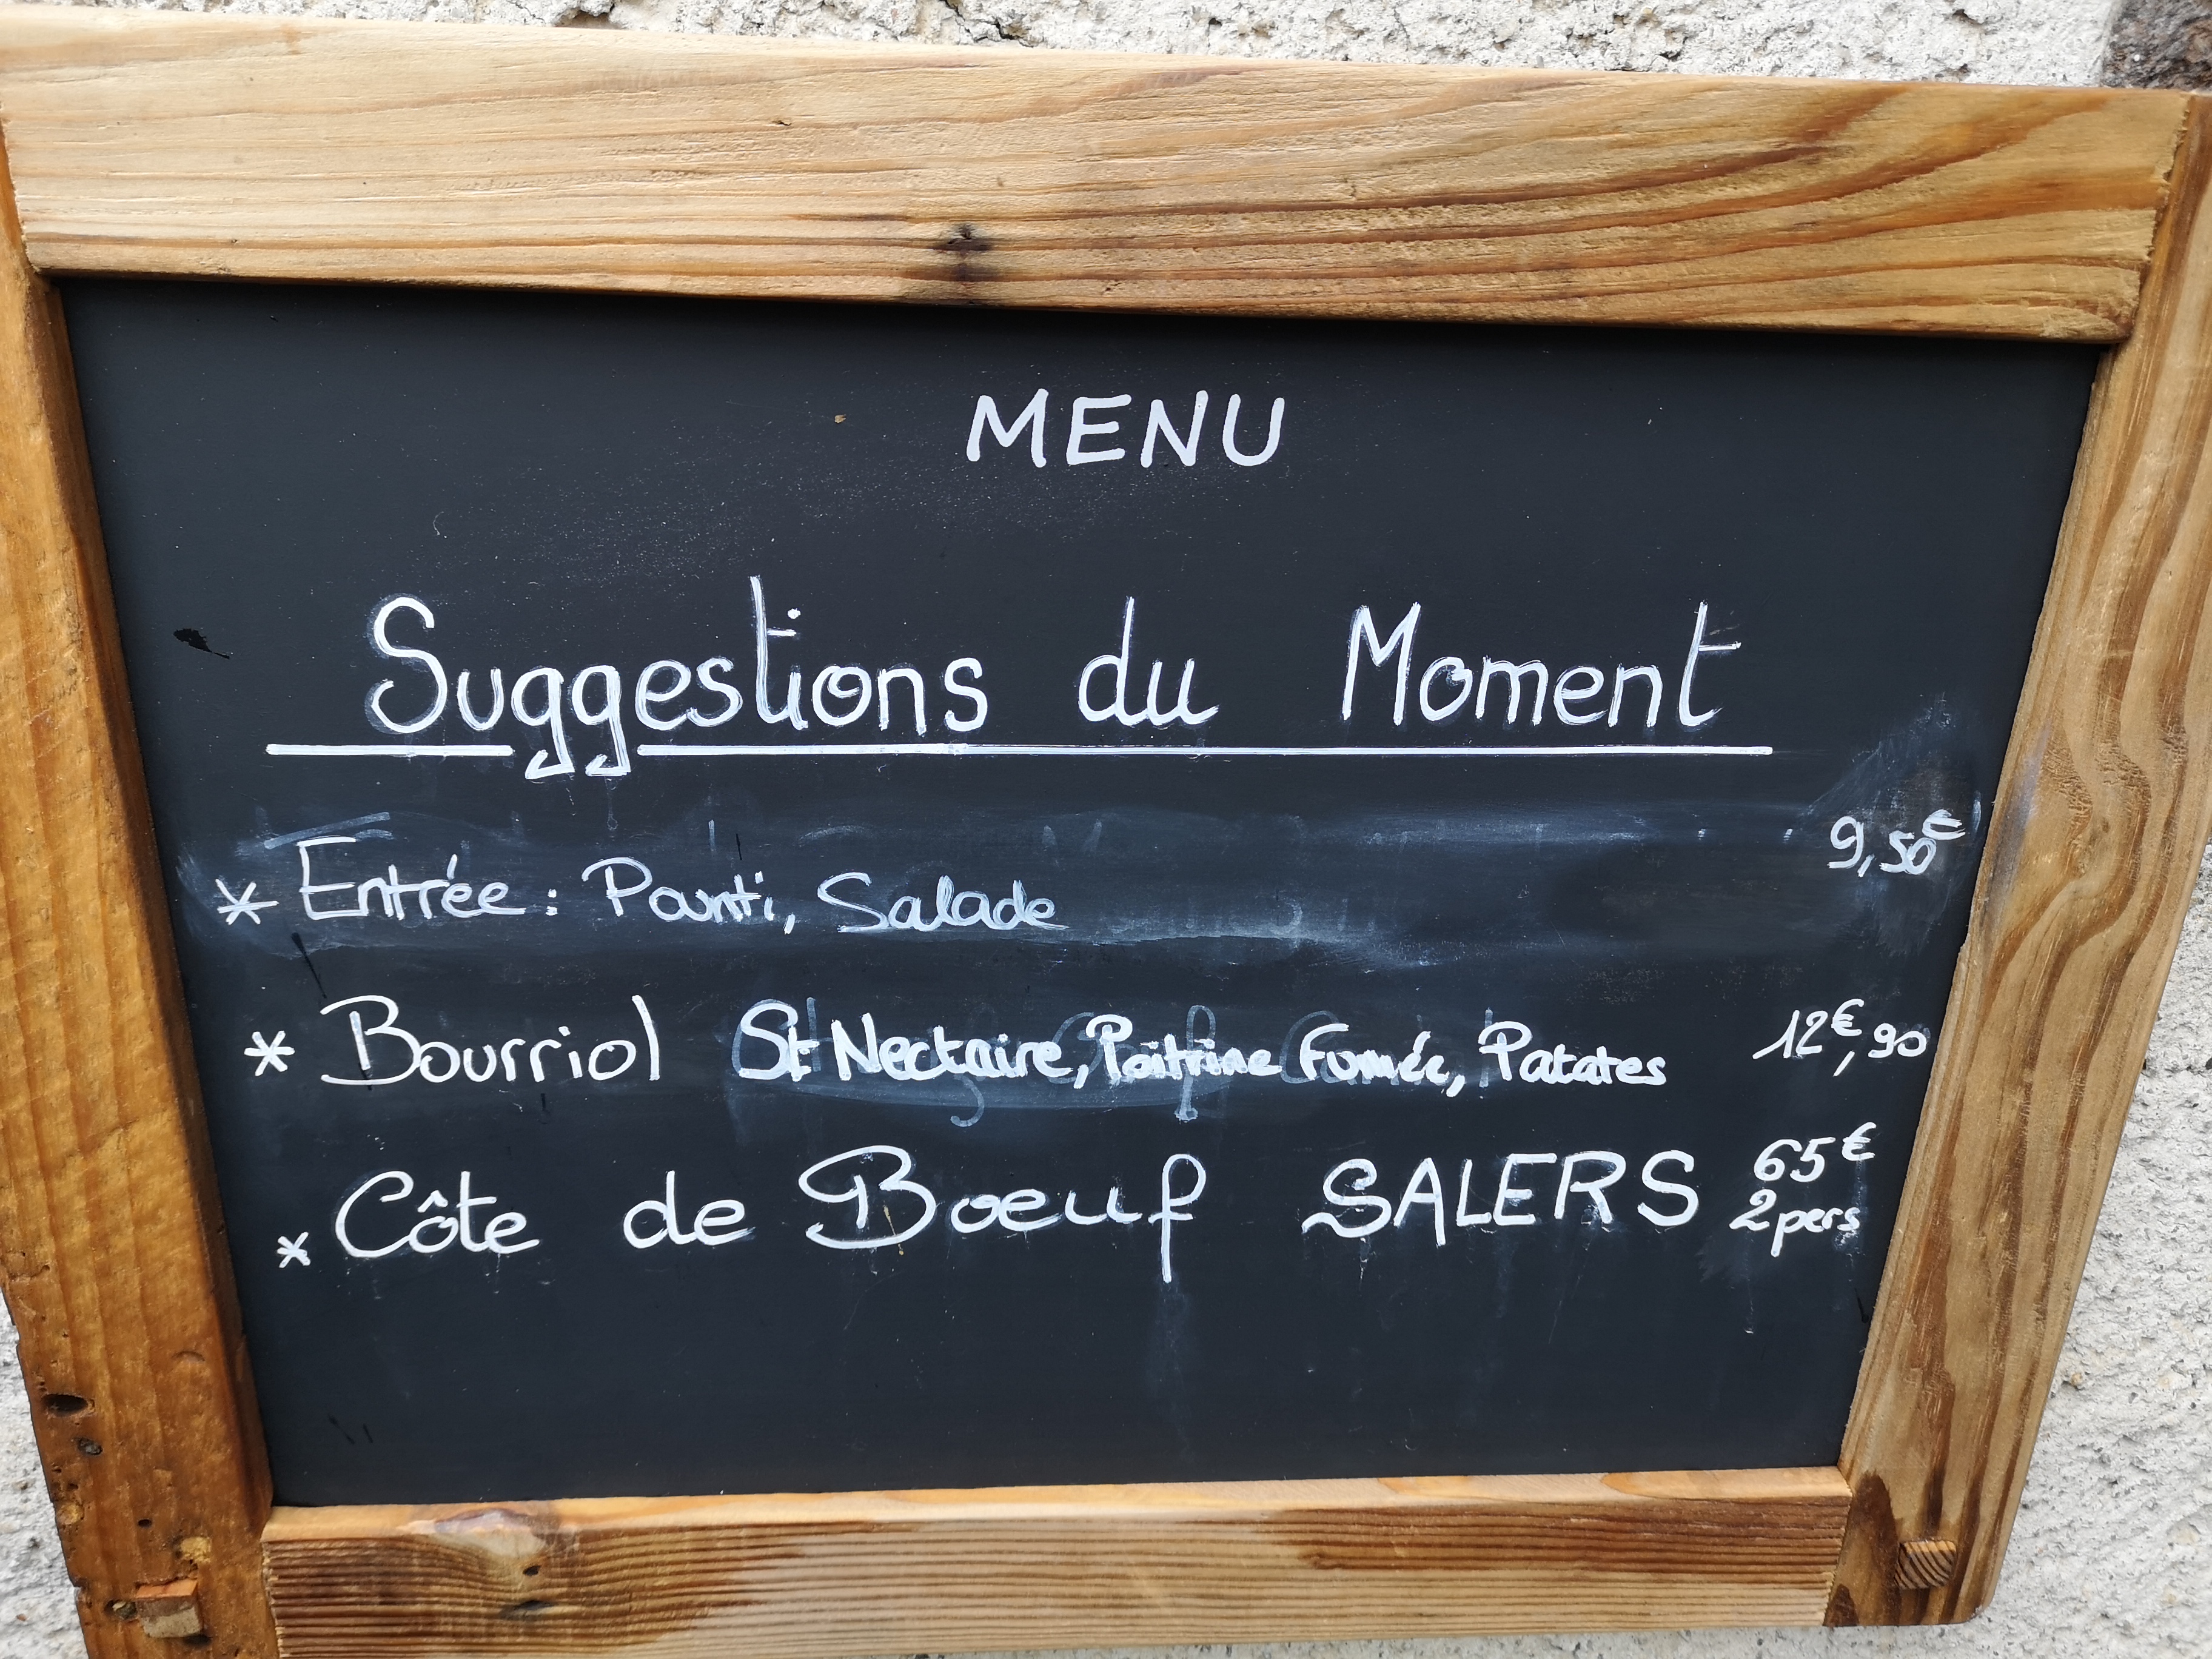 MENU
Suggestions du Moment
* Entrée : Pounti, Salade 9,50€
* Bourriol St Nectaire, Poitrine Fumée, Patates 12€,90
* Côte de Boeuf SALERS 65€
2pers